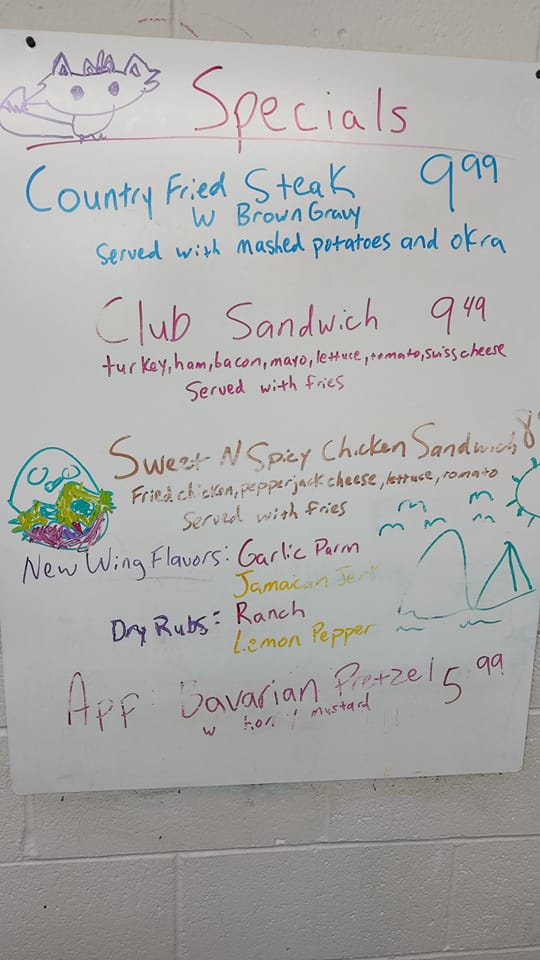 Specials
Country Fried Steak 9 99
W Brown Gravy
Served with mashed potatoes and okra
Club Sandwich 9 49
turkey, ham, bacon, mayo, lettuce, tomato, swiss cheese
Served with fries
Sweet N Spicy Chicken Sandwich
Fried chicken, pepperjack cheese, lettuce, tomato
Served with fries
New Wing Flavors: Garlic Parm
Jamaican Jerk
Dry Rubs: Ranch
Lemon Pepper
App Bavarian Pretzel 5 99
w mustard